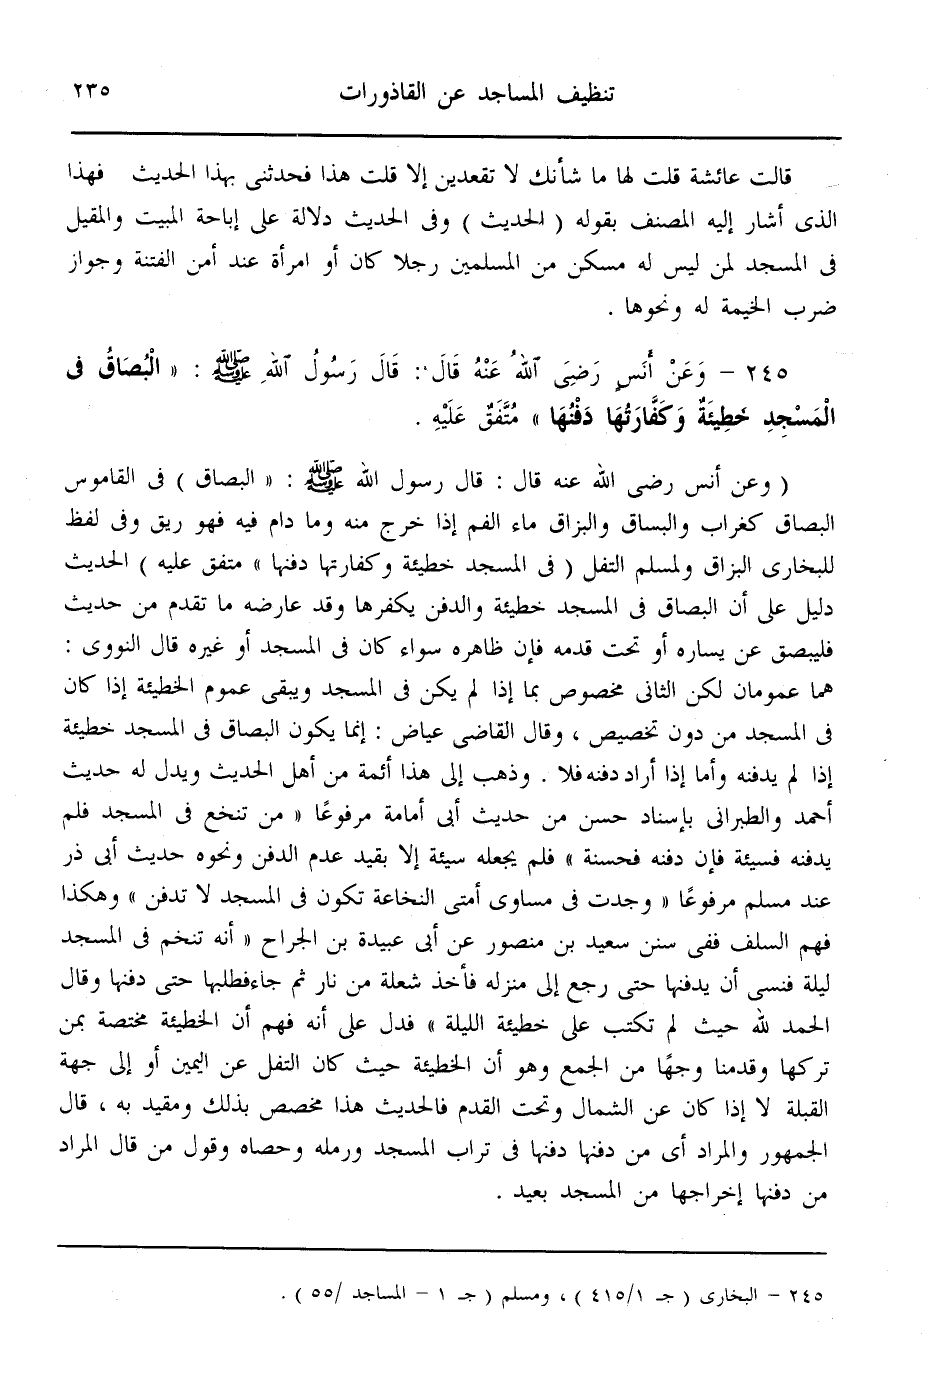 تنظيف المساجد عن القاذورات ٢٣٥
قالت عائشة قلت لها ما شأنك لا تقعدين إلا قلت هذا فحدثنى بهذا الحديث فهذا
الذى أشار إليه المصنف بقوله ( الحديث ) وفى الحديث دلالة على إباحة المبيت والمقيل
فى المسجد لمن ليس له مسكن من المسلمين رجلا كان أو امرأة عند أمن الفتنة وجواز
ضرب الخيمة له ونحوها .
٢٤٥ – وَعَنْ أَنَسٍ رَضِيَ ٱللهُ عَنْهُ قَالَ : قَالَ رَسُولُ ٱللهِ ﷺ : « الْبُصَاقُ فى
الْمَسْجِدِ خَطِيئَةٌ وَكَفَّارَتُهَا دَفْنُهَا » مُتَّفَقٌ عَلَيْهِ .
( وعن أنس رضى الله عنه قال : قال رسول الله ﷺ : « البصاق ) فى القاموس
البصاق كغراب والبساق والبزاق ماء الفم إذا خرج منه وما دام فيه فهو ريق وفى لفظ
للبخارى البزاق ولمسلم التفل ( فى المسجد خطيئة وكفارتها دفنها » متفق عليه ) الحديث
دليل على أن البصاق فى المسجد خطيئة والدفن يكفرها وقد عارضه ما تقدم من حديث
فليبصق عن يساره أو تحت قدمه فإن ظاهره سواء كان فى المسجد أو غيره قال النووى :
هما عمومان لكن الثانى مخصوص بما إذا لم يكن فى المسجد ويبقى عموم الخطيئة إذا كان
فى المسجد من دون تخصيص ، وقال القاضى عياض : إنما يكون البصاق فى المسجد خطيئة
إذا لم يدفنه وأما إذا أراد دفنه فلا . وذهب إلى هذا أئمة من أهل الحديث ويدل له حديث
أحمد والطبرانى بإسناد حسن من حديث أبى أمامة مرفوعًا « من تنخع فى المسجد فلم
يدفنه فسيئة فإن دفنه فحسنة » فلم يجعله سيئة إلا بقيد عدم الدفن ونحوه حديث أبى ذر
عند مسلم مرفوعًا « وجدت فى مساوى أمتى النخاعة تكون فى المسجد لا تدفن » وهكذا
فهم السلف ففى سنن سعيد بن منصور عن أبى عبيدة بن الجراح « أنه تنخم فى المسجد
ليلة فنسى أن يدفنها حتى رجع إلى منزله فأخذ شعلة من نار ثم جاء فطلبها حتى دفنها وقال
الحمد لله حيث لم تكتب على خطيئة الليلة » فدل على أنه فهم أن الخطيئة مختصة بمن
تركها وقدمنا وجهًا من الجمع وهو أن الخطيئة حيث كان التفل عن اليمين أو إلى جهة
القبلة لا إذا كان عن الشمال وتحت القدم فالحديث هذا مخصص بذلك ومقيد به ، قال
الجمهور والمراد أى من دفنها دفنها فى تراب المسجد ورمله وحصاه وقول من قال المراد
من دفنها إخراجها من المسجد بعيد .
٢٤٥ – البخارى ( جـ ٤١٥/١ ) ، ومسلم ( جـ ١ – المساجد /٥٥ ) .